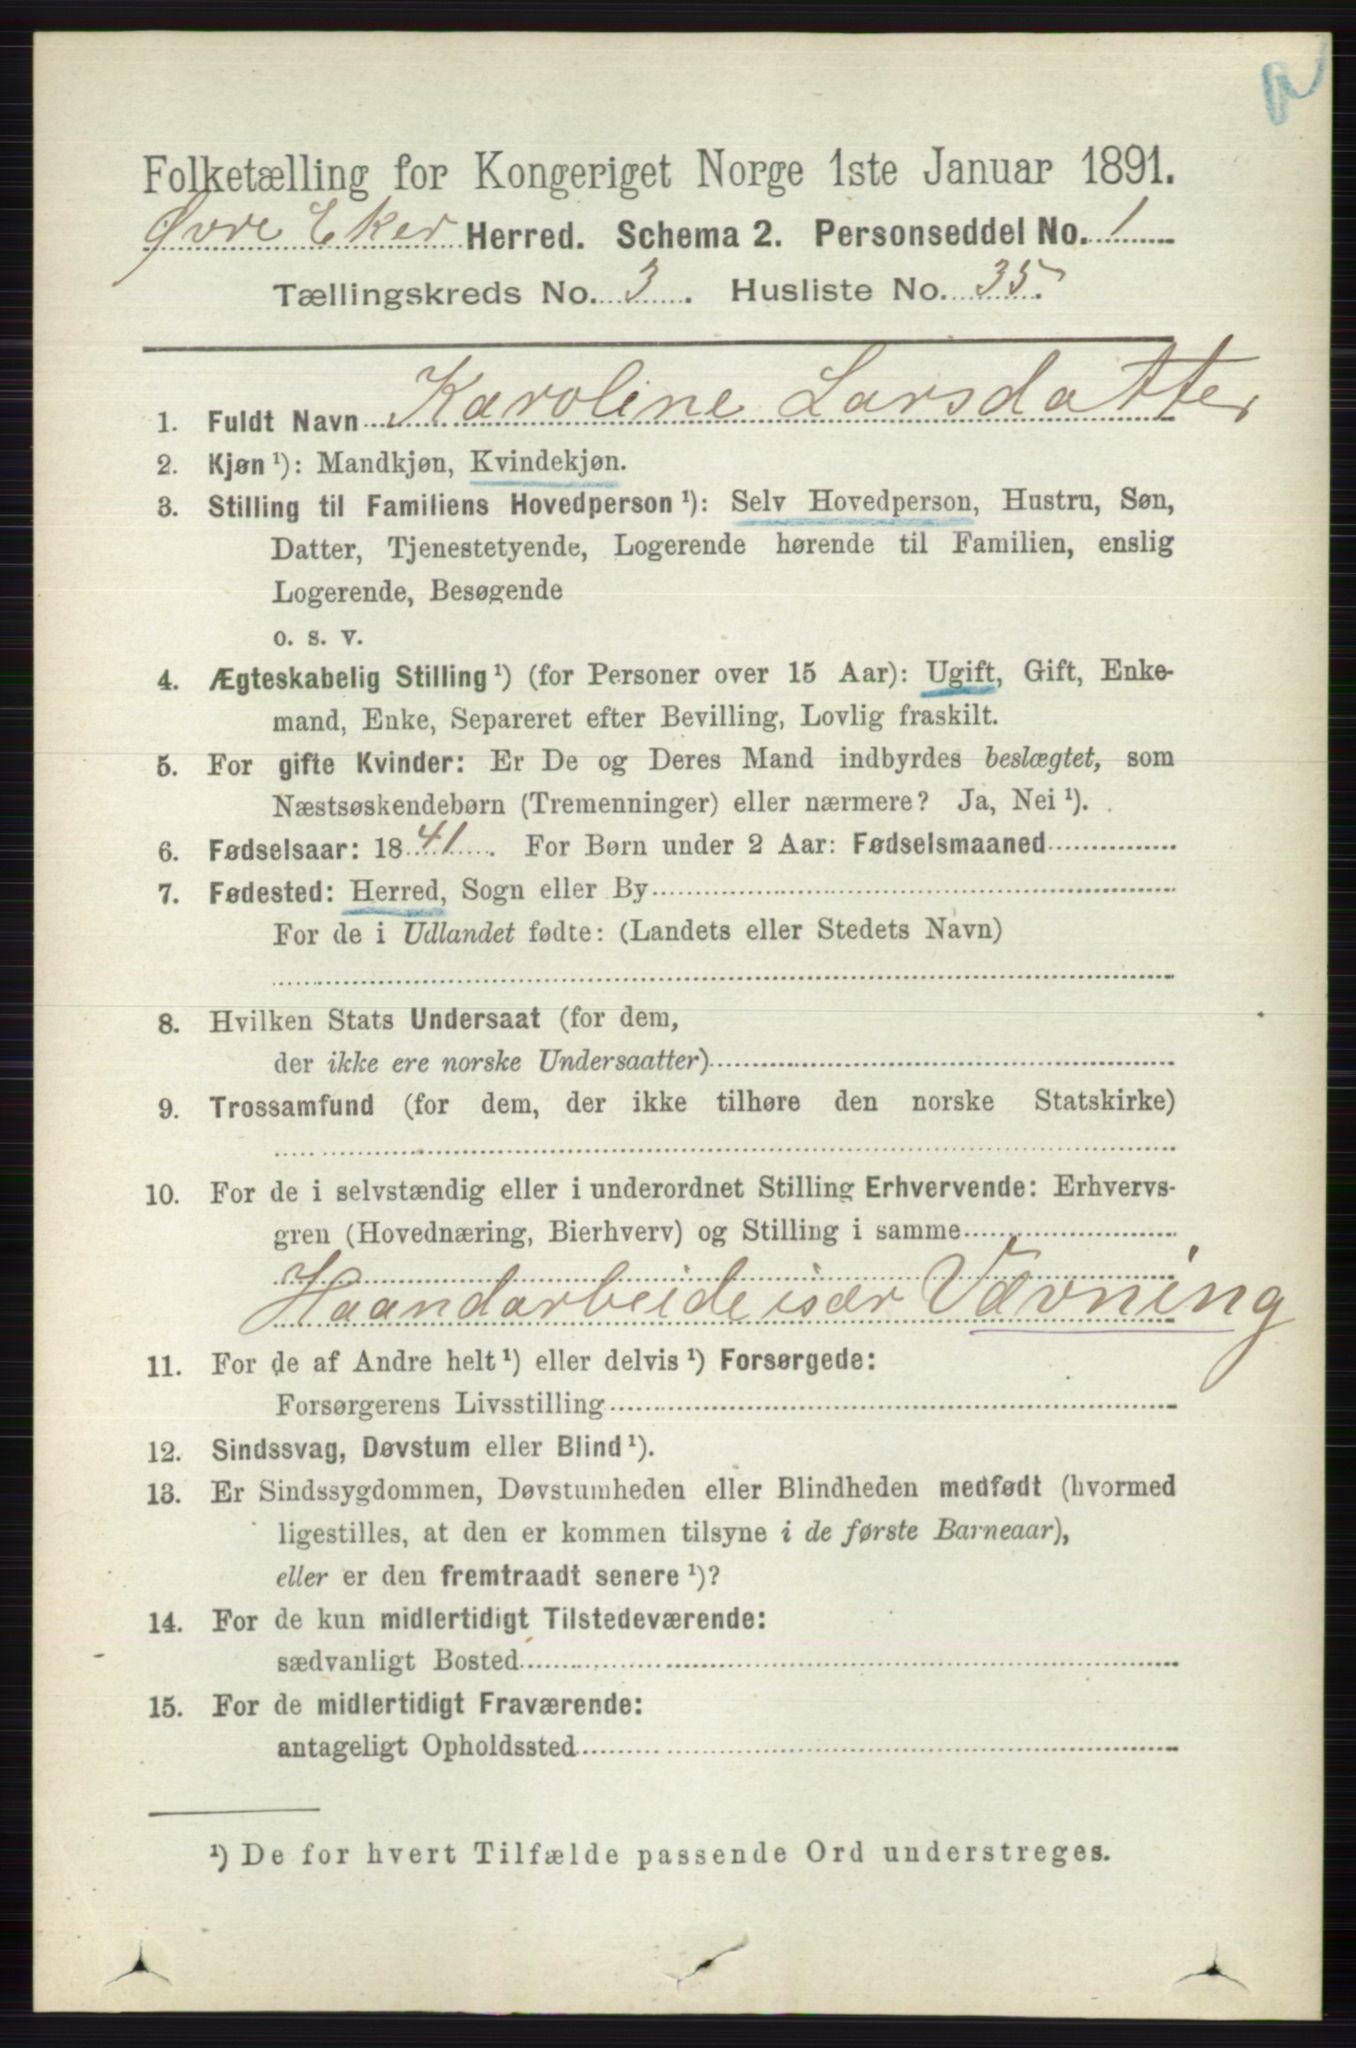 Folketælling for Kongeriget Norge 1ste Januar 1891.
Øvre Eker Herred. Schema 2. Personseddel No. 1
Tællingskreds No. 3. Husliste No. 35.
1. Fuldt Navn Karoline Larsdatter
2. Kjøn ¹): Mandkjøn, Kvindekjøn.
3. Stilling til Familiens Hovedperson ¹): Selv Hovedperson, Hustru, Søn,
Datter, Tjenestetyende, Logerende hørende til Familien, enslig
Logerende, Besøgende
o. s. v.
4. Ægteskabelig Stilling ¹) (for Personer over 15 Aar): Ugift, Gift, Enke-
mand, Enke, Separeret efter Bevilling, Lovlig fraskilt.
5. For gifte Kvinder: Er De og Deres Mand indbyrdes beslægtet, som
Næstsøskendebørn (Tremenninger) eller nærmere? Ja, Nei ¹).
6. Fødselsaar: 1841. For Børn under 2 Aar: Fødselsmaaned
7. Fødested: Herred, Sogn eller By
For de i Udlandet fødte: (Landets eller Stedets Navn)
8. Hvilken Stats Undersaat (for dem,
der ikke ere norske Undersaatter)
9. Trossamfund (for dem, der ikke tilhøre den norske Statskirke)
10. For de i selvstændig eller i underordnet Stilling Erhvervende: Erhvervs-
gren (Hovednæring, Bierhverv) og Stilling i samme
Haandarbeide især Vævning
11. For de af Andre helt ¹) eller delvis ¹) Forsørgede:
Forsørgerens Livsstilling
12. Sindssvag, Døvstum eller Blind ¹).
13. Er Sindssygdommen, Døvstumheden eller Blindheden medfødt (hvormed
ligestilles, at den er kommen tilsyne i de første Barneaar),
eller er den fremtraadt senere ¹)?
14. For de kun midlertidigt Tilstedeværende:
sædvanligt Bosted
15. For de midlertidigt Fraværende:
antageligt Opholdssted
¹) De for hvert Tilfælde passende Ord understreges.